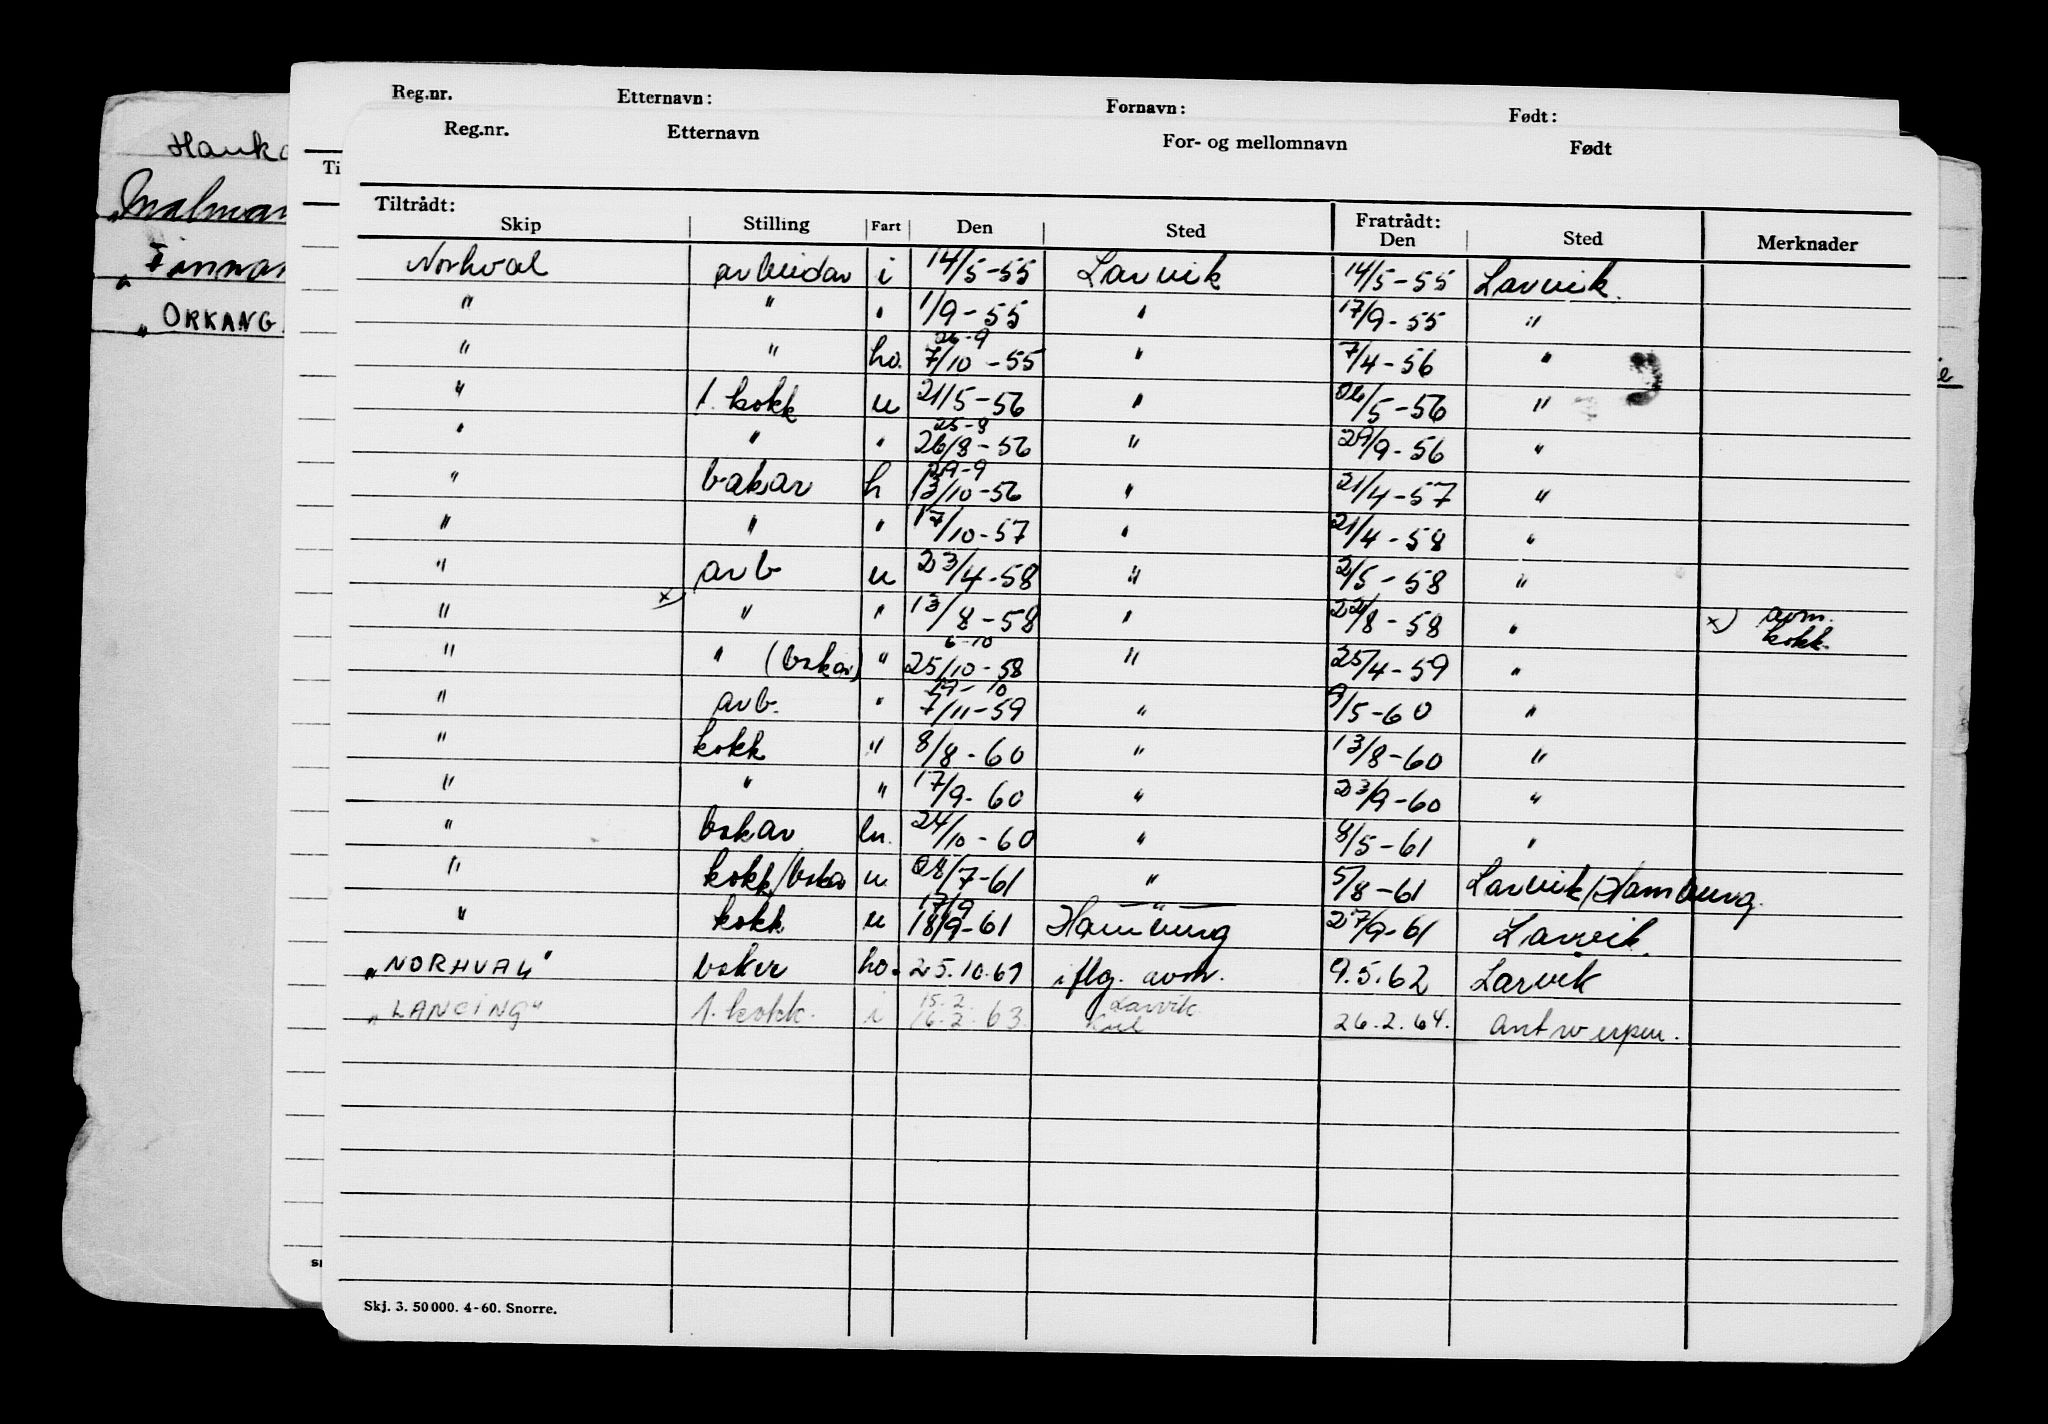 Reg.nr. Etternavn: Fornavn: Født:
Reg.nr. Etternavn For- og mellomnavn Født
Hauk
Ti
„Malman
„Finnan
„ ORKANG
Tiltrådt: Fratrådt:
Skip Stilling Fart Den Sted Den Sted Merknader
Norhval arbeidar i 14/5-55 Larvik 14/5-55 Larvik.
" " " 1/9-55 " 17/9-55 "
26-9
" " ho. 7/10-55 " 7/4-56 "
" 1. kokk u 21/5-56 " 26/5-56 "
25-8
" " " 26/8-56 " 29/9-56 "
29-9
" bakar h 13/10-56 " 21/4-57 "
" " " 17/10-57 " 21/4-58 "
" arb u 23/4-58 " 2/5-58 "
" x) " " 13/8-58 " 22/8-58 " x) avm. kokk.
6-10
" " (bakar) " 25/10-58 " 25/4-59 "
19-10
" arb. " 7/11-59 " 9/5-60 "
" kokk " 8/8-60 " 13/8-60 "
" " " 17/9-60 " 23/9-60 "
" bakar hv. 24/10-60 " 8/5-61 "
" kokk/bakar u 28/7-61 " 5/8-61 Larvik/Hamburg.
17/9
" kokk u 18/9-61 Hamburg 27/9-61 Larvik.
„NORHVAL" baker ho. 25.10.61 i flg. avm. 9.5.62 Larvik
15.2. Larvik
„LANCING" 1. kokk. i 16.2.63. Kiel 26.2.64. Antwerpen.
Skj. 3. 50000. 4-60. Snorre.